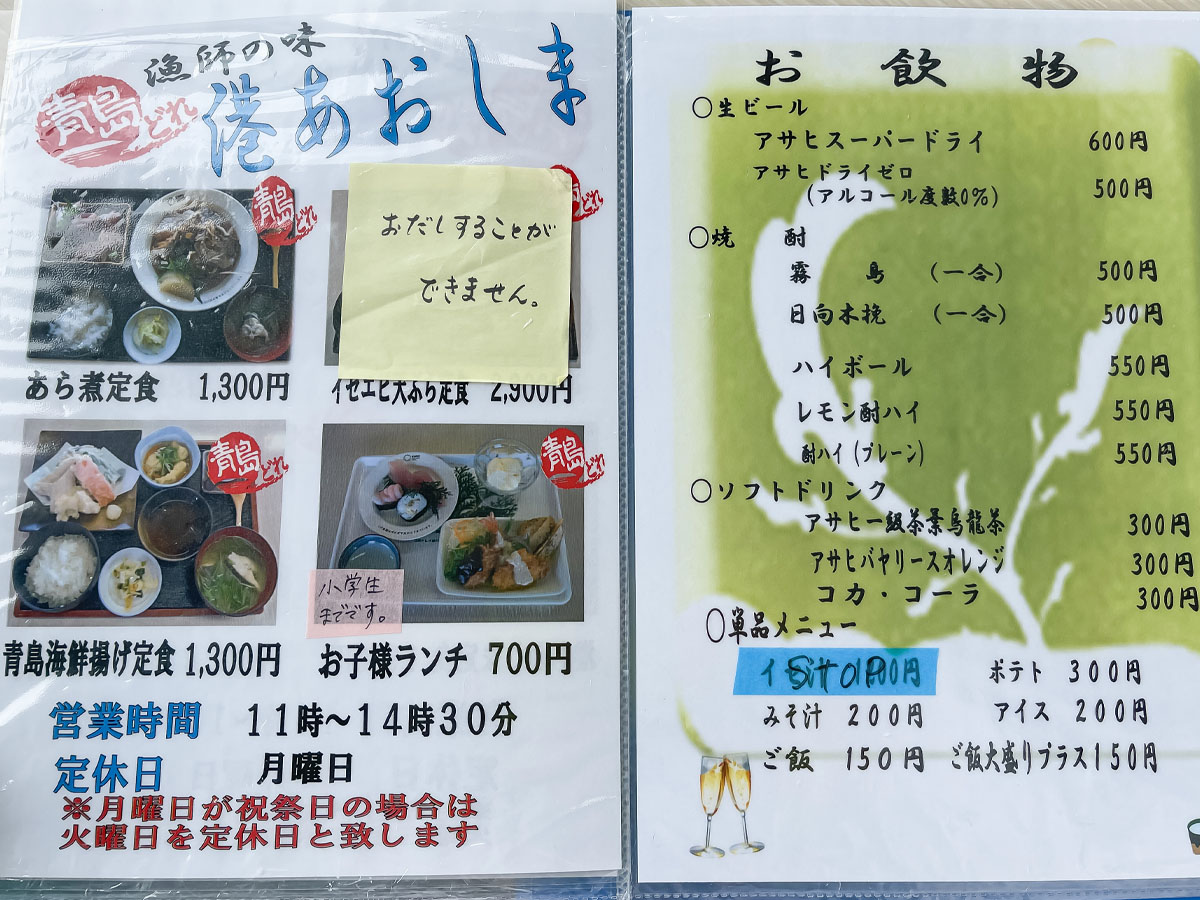 漁師の味
青島どれ
港あおしま
青島どれ
おだしすることが
できません。
あら煮定食 1,300円
イセエビ天ぷら定食 2,900円
青島どれ
青島どれ
小学生
までです。
青島海鮮揚げ定食 1,300円
お子様ランチ 700円
営業時間 11時〜14時30分
定休日 月曜日
※月曜日が祝祭日の場合は
火曜日を定休日と致します
お飲物
○生ビール
アサヒスーパードライ 600円
アサヒドライゼロ
(アルコール度数0%) 500円
○焼酎
霧島 (一合) 500円
日向木挽 (一合) 500円
ハイボール 550円
レモン酎ハイ 550円
酎ハイ(プレーン) 550円
○ソフトドリンク
アサヒ一級茶葉烏龍茶 300円
アサヒバヤリースオレンジ 300円
コカ・コーラ 300円
○単品メニュー
STOP
ポテト 300円
みそ汁 200円
アイス 200円
ご飯 150円
ご飯大盛りプラス150円